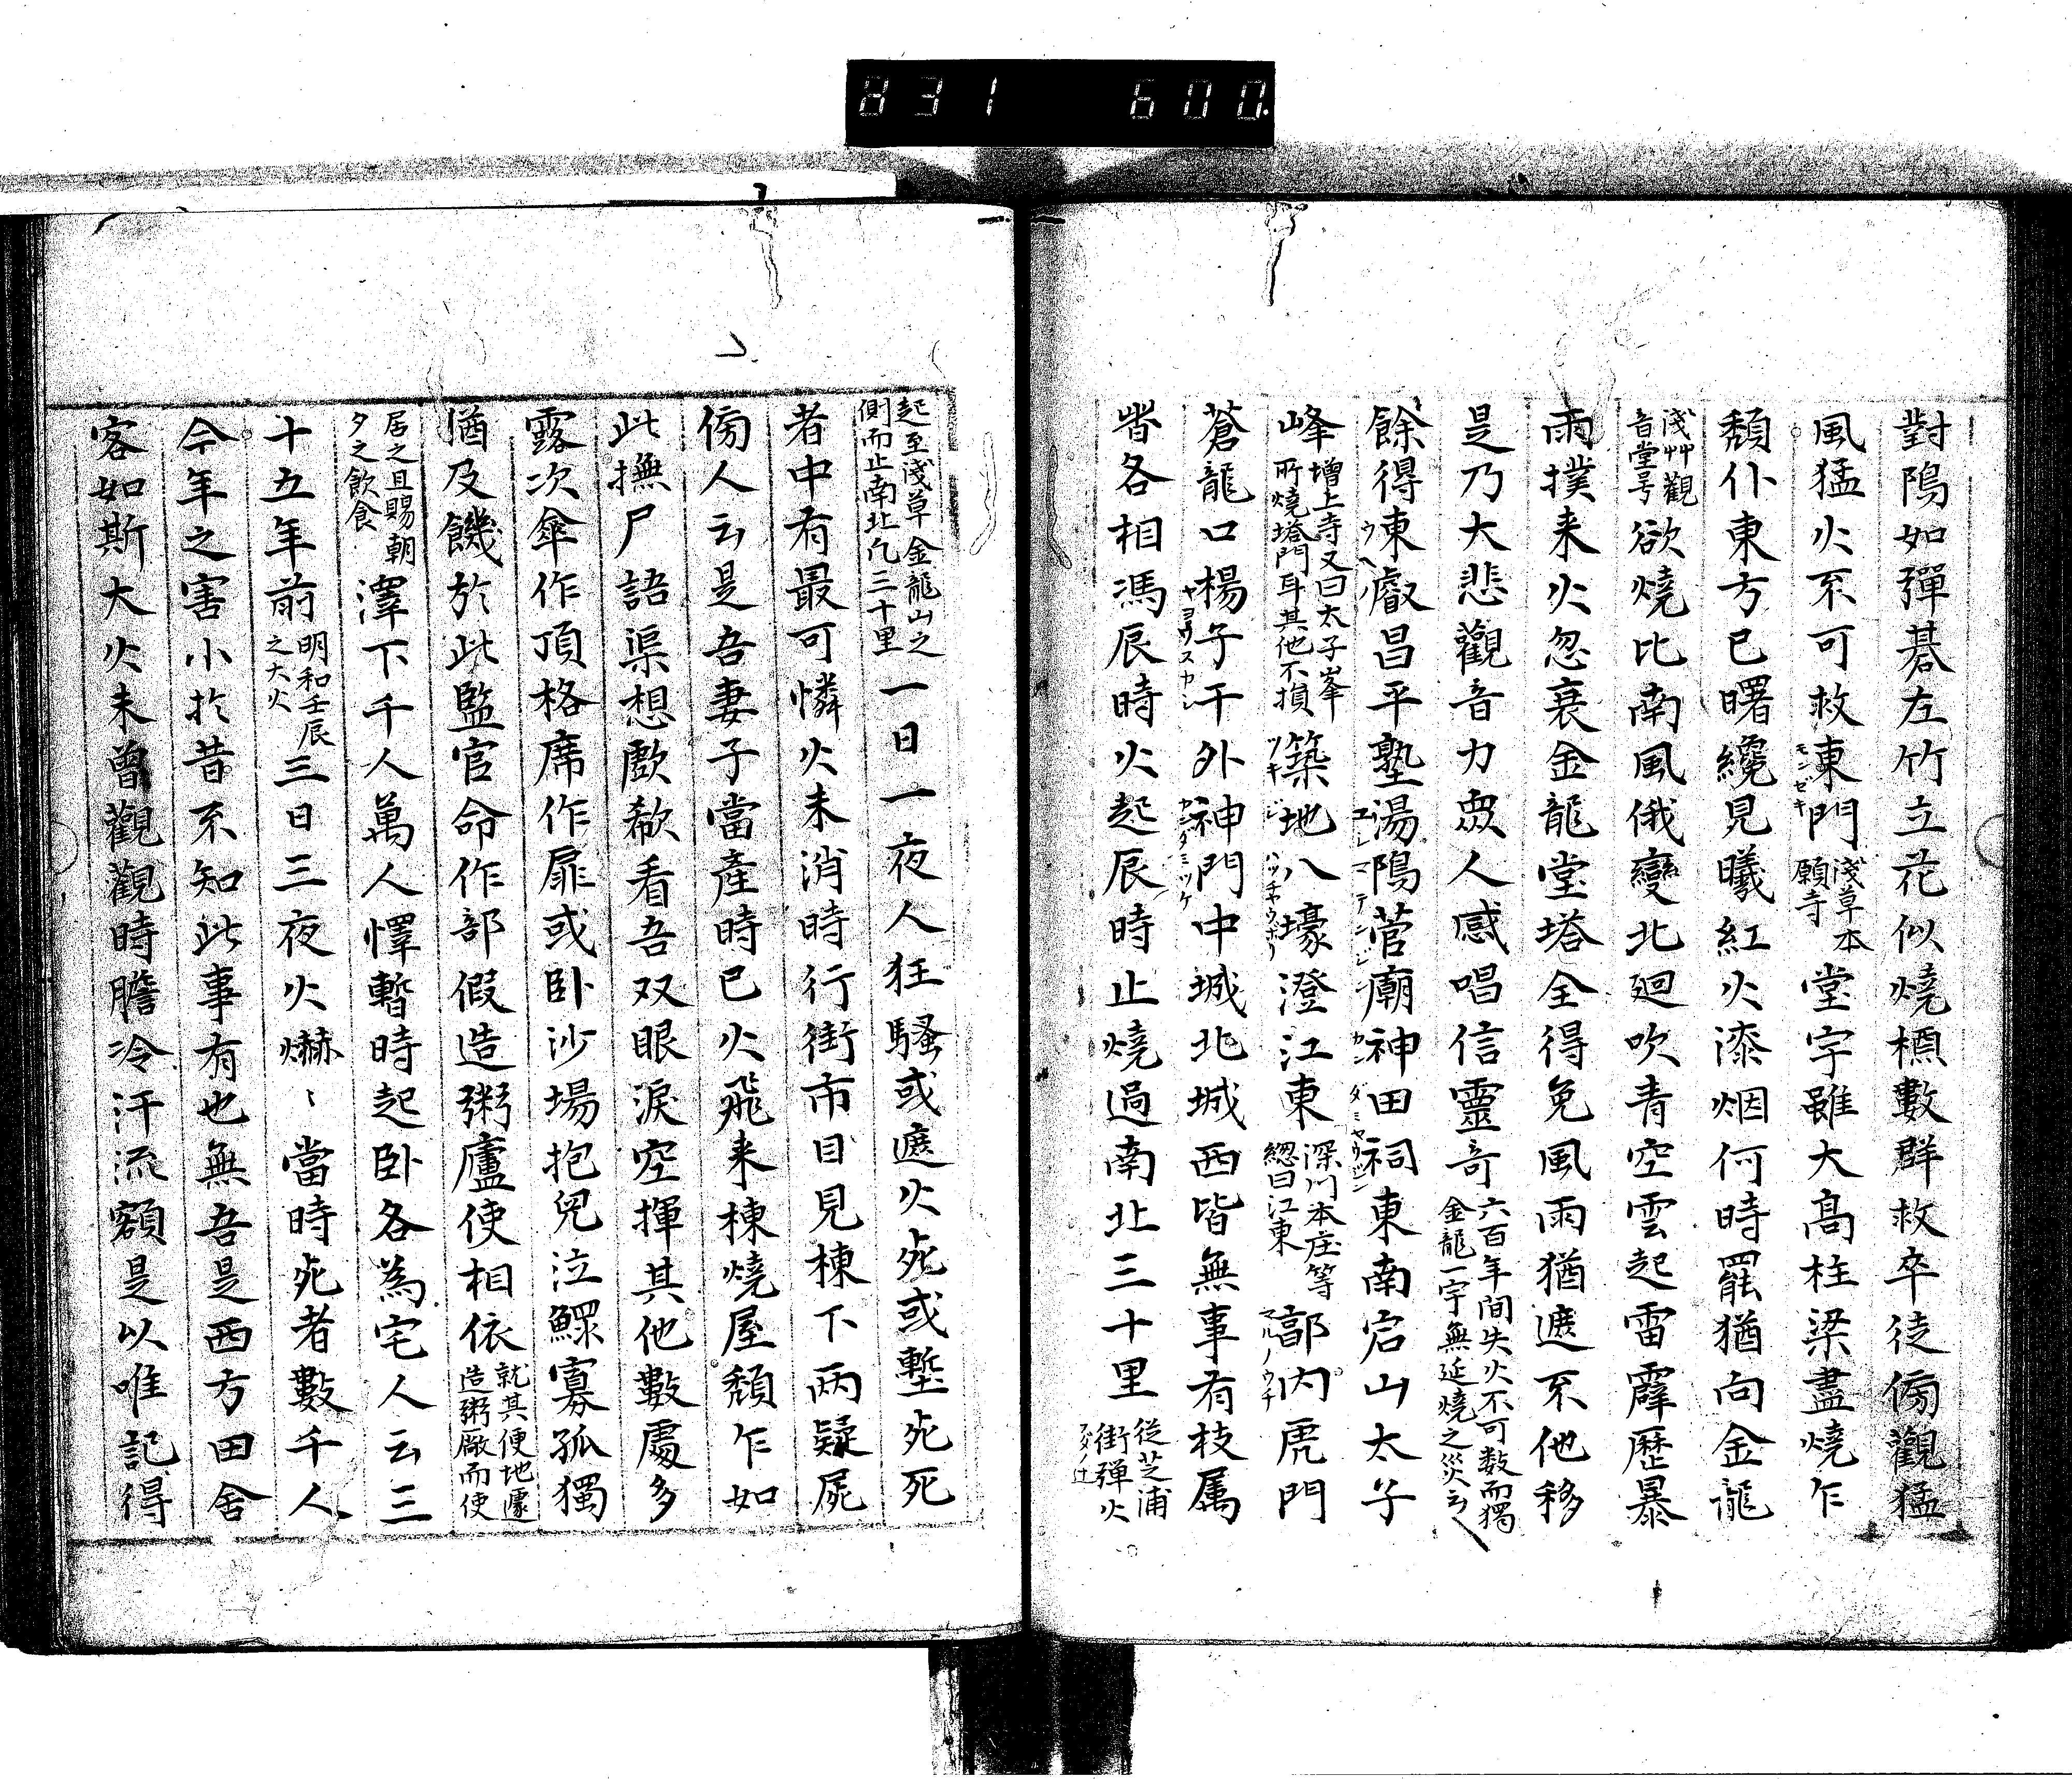 831 600.
對隝如彈棊左竹立花似燒標數群救卒徒傍觀猛
風猛火不可救東門淺草本願寺堂宇雖大高柱梁盡燒乍
モンゼキ
頽仆東方已曙纔見曦紅火漆烟何時罷猶向金龍
淺艸觀音堂号欲燒比南風俄變北廻吹青空雲起雷霹歷暴
雨撲来火忽衰金龍堂塔全得免風雨猶遮不他移
是乃大悲觀音力衆人感唱信靈奇六百年間失火不可数而獨金龍一宇無延燒之災云
餘得東叡昌平塾湯隝菅廟神田祠東南宕山太子
ウヘ
カンダミヤウジン
峰增上寺又曰太子峯所燒塔門耳其他不損築地八壕澄江東深川本庄等總曰江東郭内虎門
ツキジ
ハッチヤウボリ
マルノウチ
蒼龍口楊子干外神門中城北城西皆無事有枝属
ヤヨウスカシ
カンダミツケ
皆各相馮辰時火起辰時止燒過南北三十里從芝浦街彈火
起至淺草金龍山之側而止南北凡三十里一日一夜人狂騷或遮火死或塹死死
者中有最可憐火未消時行街市目見棟下兩疑屍
傍人云是吾妻子當產時已火飛来棟燒屋頽乍如
此撫尸語渠想歔欷看吾双眼淚空揮其他數處多
露次傘作頂格席作扉或卧沙場抱兒泣鰥寡孤獨
猶及饑於此監官命作部假造粥廬使相依就其便地處造粥廠而使
居之且賜朝夕之飲食澤下千人萬人懌暫時起卧各為宅人云三
十五年前明和壬辰之大火三日三夜火爀〻當時死者數千人
今年之害小於昔不知此事有也無吾是西方田舍
客如斯大火未曾觀觀時膽冷汗流額是以唯記得